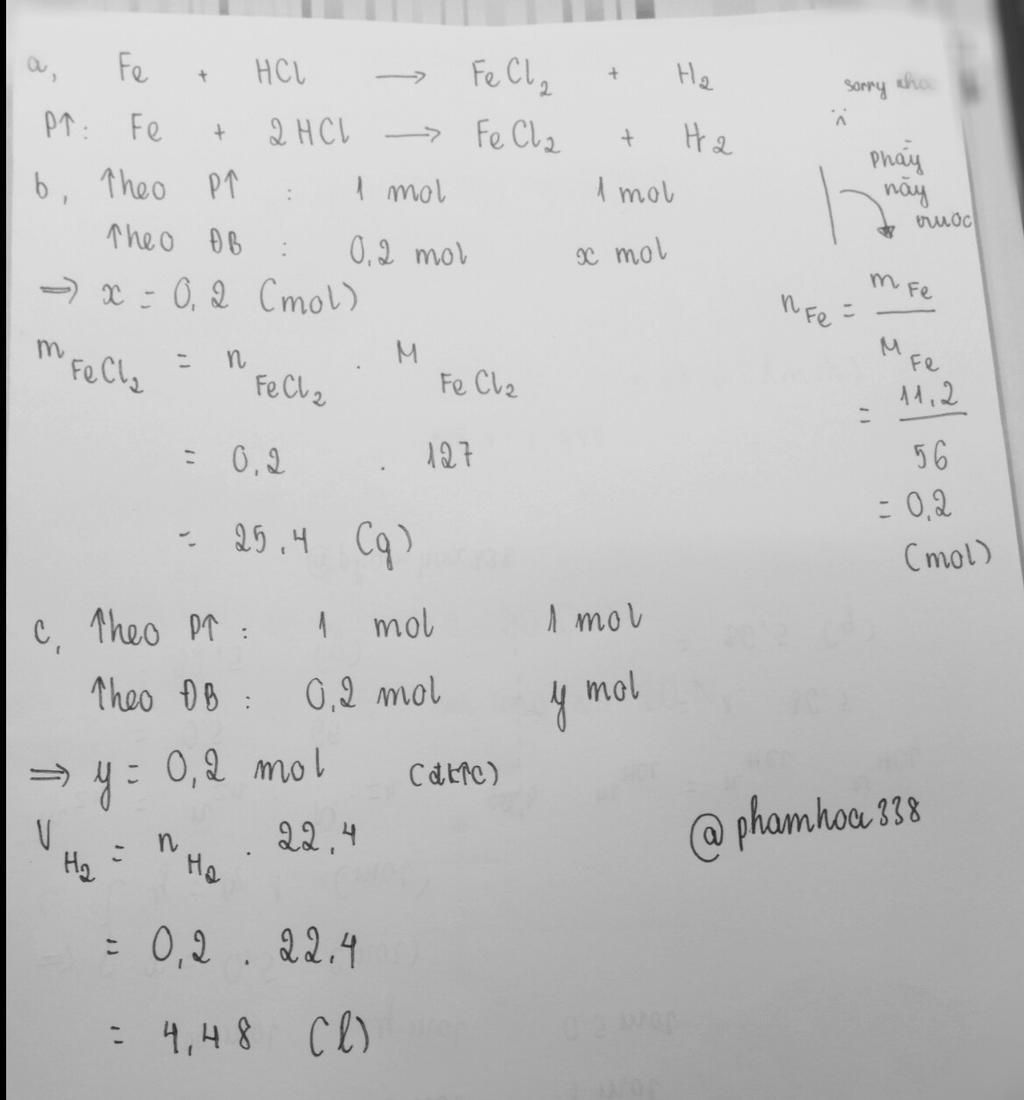 a, Fe + HCl → FeCl₂ + H₂
PT: Fe + 2HCl → FeCl₂ + H₂
b, Theo PT : 1 mol 1 mol
Theo ĐB : 0,2 mol x mol
⇒ x = 0,2 (mol)
m FeCl₂ = n FeCl₂ . M FeCl₂
= 0,2 . 127
= 25,4 (g)
c, Theo PT : 1 mol 1 mol
Theo ĐB : 0,2 mol y mol
⇒ y = 0,2 mol (đktc)
V H₂ = n H₂ . 22,4
= 0,2 . 22,4
= 4,48 (l)
sorry nha
phầy
nãy
trước
n Fe = m Fe / M Fe
= 11,2 / 56
= 0,2
(mol)
@phamhoa338